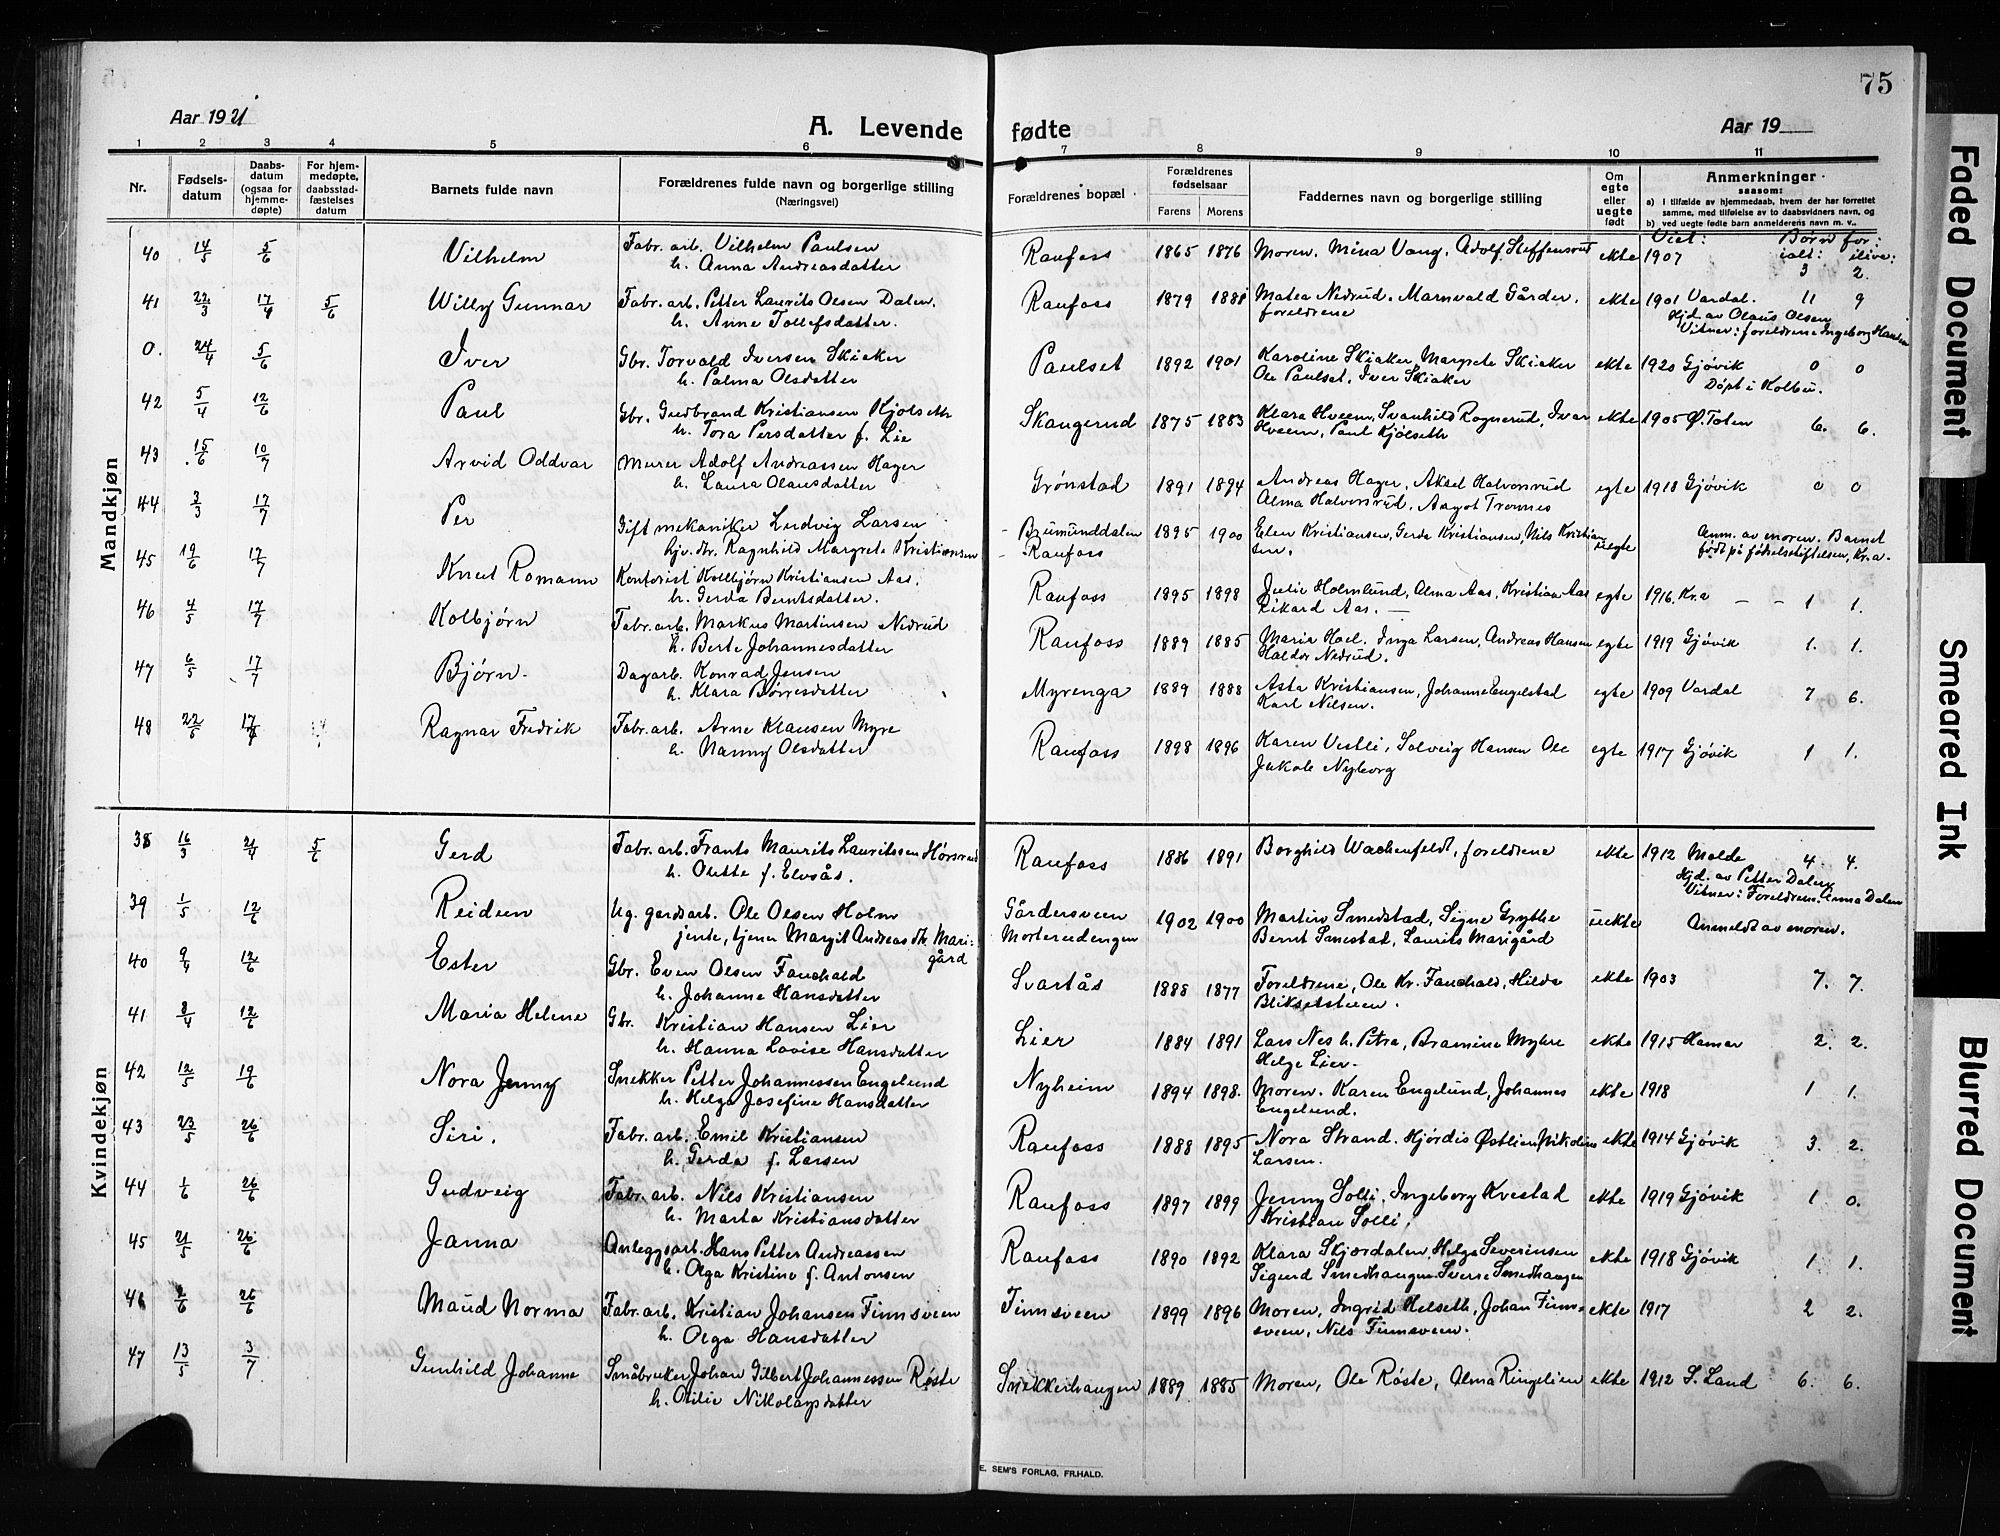 75
Aar 1921
A. Levende fødte
Aar 19
1 2 3 4 5 6 7 8 9 10 11
Nr.
Fødsels-
datum
Daabs-
datum
(ogsaa for
hjemme-
døpte)
For hjem-
medøpte,
daabsstad-
fæstelses
datum
Barnets fulde navn
Forældrenes fulde navn og borgerlige stilling
(Næringsvei)
Forældrenes bopæl
Forældrenes
fødselsaar
Farens Morens
Faddernes navn og borgerlige stilling
Om
egte
eller
uegte
født
Anmerkninger
saasom:
a) i tilfælde av hjemmedaab, hvem der har forrettet
samme, med tilføielse av to daabsvidners navn, og
b) ved uegte fødte barn anmelderens navn m. v.
Mandkjøn
40 14/5 5/6 Vilhelm Fabr. arb. Vilhelm Paulsen Raufoss 1865 1876 Moren, Mina Vang, Adolf Steffensrud ekte Viet: 1907 Børn for: ialt: 3 ilive: 2.
h. Anna Andreasdatter
41 22/3 17/4 5/6 Willy Gunnar Fabr. arb. Petter Laurits Olsen Dalen. Raufoss 1879 1881 Matea Nedrud, Marnvald Gårder, ekte 1901 Vardal. 11 9
h. Anne Tollefsdatter. foreldrene Hjd. av Olaus Olsen
Vitner: foreldrene Ingeborg Hansen
0. 24/4 5/6 Iver Gbr. Torvald Iversen Skiaker Paulset 1892 1901 Karoline Skiaker Margrete Skiaker ekte 1920 Gjøvik 0 0
h. Palma Olsdatter Ole Paulset, Iver Skiaker Døpt i Kolbu.
42 5/4 12/6 Paul Gbr. Gudbrand Kristiansen Kjølseth Skangerud 1875 1883 Klara Hveem, Svanhild Rognerud, Ivar ekte 1905 Ø. Toten 6. 6.
h. Tora Persdatter f. Lie Hveem, Paul Kjølseth
43 15/6 10/7 Arvid Oddvar Murer Adolf Andreassen Hager Grønstad 1891 1894 Andreas Hager, Aksel Halvorsrud egte 1918 Gjøvik 0 0
h. Laura Olausdatter Alma Halvorsrud, Aagot Tromnes
44 3/3 17/7 Per Gift mekaniker Ludvig Larsen Brumunddalen 1895 1900 Elen Kristiansen, Gerda Kristiansen, Nils Kristian- uegte Anm. av moren. Barnet
hjv. dtr. Ragnhild Margrete Kristiansen Raufoss sen. født på fødselsstiftelsen, Kr.a.
45 19/6 17/7 Knut Romann Kontorist Kolbjørn Kristiansen Aas. Raufoss 1895 1898 Julie Holmlund, Alma Aas, Kristian Aas egte 1916. Kr.a – – 1 1.
h. Gerda Berntsdatter. Rikard Aas. –
46 4/5 17/7 Kolbjørn Fabr. arb. Markus Martinsen Nedrud Raufoss 1889 1885 Maria Hoel, Inga Larsen, Andreas Hansen egte 1919 Gjøvik 1. 1.
h. Berte Johannesdatter Haldor Nedrud.
47 6/5 17/7 Bjørn. Dagarb. Konrad Jensen Myrenga 1889 1888 Asta Kristiansen, Johanne Engelstad egte 1909 Vardal 7 6.
h. Klara Børresdatter Karl Nilsen.
48 22/6 17/7 Ragnar Fredrik Fabr. arb. Arne Klausen Myre Raufoss 1898 1896 Karen Vestli, Solveig Hansen Ole egte 1917 Gjøvik 1 1.
h. Nanny Olsdatter Jakob Nyborg
Kvindekjøn
38 16/3 24/4 5/6 Gerd Fabr. arb. Frants Maurits Lauritssen Hørsrud Raufoss 1886 1891 Borghild Wachenfeldt, foreldrene ekte 1912 Molde 4. 4.
h. Olette f. Elvsås. Hjd. av Petter Dalen
Vitner: Foreldrene. Anna Dalen
39 1/5 12/6 Reidun Ug. gardsarb. Ole Olsen Holm Gårdersveen 1902 1900 Martin Smedstad, Signe Grythe uekte Anmeldt av moren.
jente, tjener Margit Andreasdtr. Mari- Morterudengen Bernt Smestad, Laurits Marigård
gård
40 9/4 12/6 Ester Gbr. Even Olsen Fauchald Svartås 1888 1877 Foreldrene, Ole Kr. Fauchald, Hilda ekte 1903 7. 7.
h. Johanne Hansdatter Bliksetstuen.
41 8/4 12/6 Maria Helene Gbr. Kristian Hansen Lier Lier 1884 1891 Lars Nes h. Petra, Bramine Myhre ekte 1915 Hamar 2. 2.
h. Hanna Lovise Hansdatter Helge Lier.
42 12/5 19/6 Nora Jenny Snekker Petter Johannessen Engelund Nyheim 1894 1898. Moren. Karen Engelund, Johannes ekte 1918 1 1.
h. Helga Josefine Hansdatter Engelund.
43 23/5 26/6 Siri. Fabr. arb. Emil Kristiansen Raufoss 1888 1895 Nora Strand. Hjórdis Østlien, Nikoline ekte 1914 Gjøvik 3. 2.
h. Gerda f. Larsen Larsen.
44 1/6 26/6 Gudveig Fabr. arb. Nils Kristiansen Raufoss 1897 1899 Jenny Solli, Ingeborg Kvestad ekte 1919 Gjøvik 1 0.
h. Marta Kristiansdatter Kristian Solli.
45 21/5 26/6 Janna Anleggsarb. Hans Petter Andreassen Raufoss 1890 1892 Klara Skjørdalen, Helga Severinsen ekte 1918 Gjøvik 1 1.
h. Olga Kristine f. Antonsen Sigurd Smedhaugen Sverre Smedhaugen
46 2/6 26/6 Maud Norma Fabr. arb. Kristian Johansen Finnsveen Finnsveen 1899 1896 Moren, Ingrid Helseth, Johan Finn- ekte 1917 2 2.
h. Olga Hansdatter sveen, Nils Finnsveen.
47 13/5 3/7 Gunhild Johanne Småbruker Johan Gilbert Johannessen Røste Snekkerhaugen 1889 1885 Moren, Ole Røste, Alma Ringelien ekte 1912 S. Land 6. 6.
h. Otilie Nikolaysdatter
E. SEM'S FORLAG, FR.HALD.
Faded Document
Smeared Ink
Blurred Document